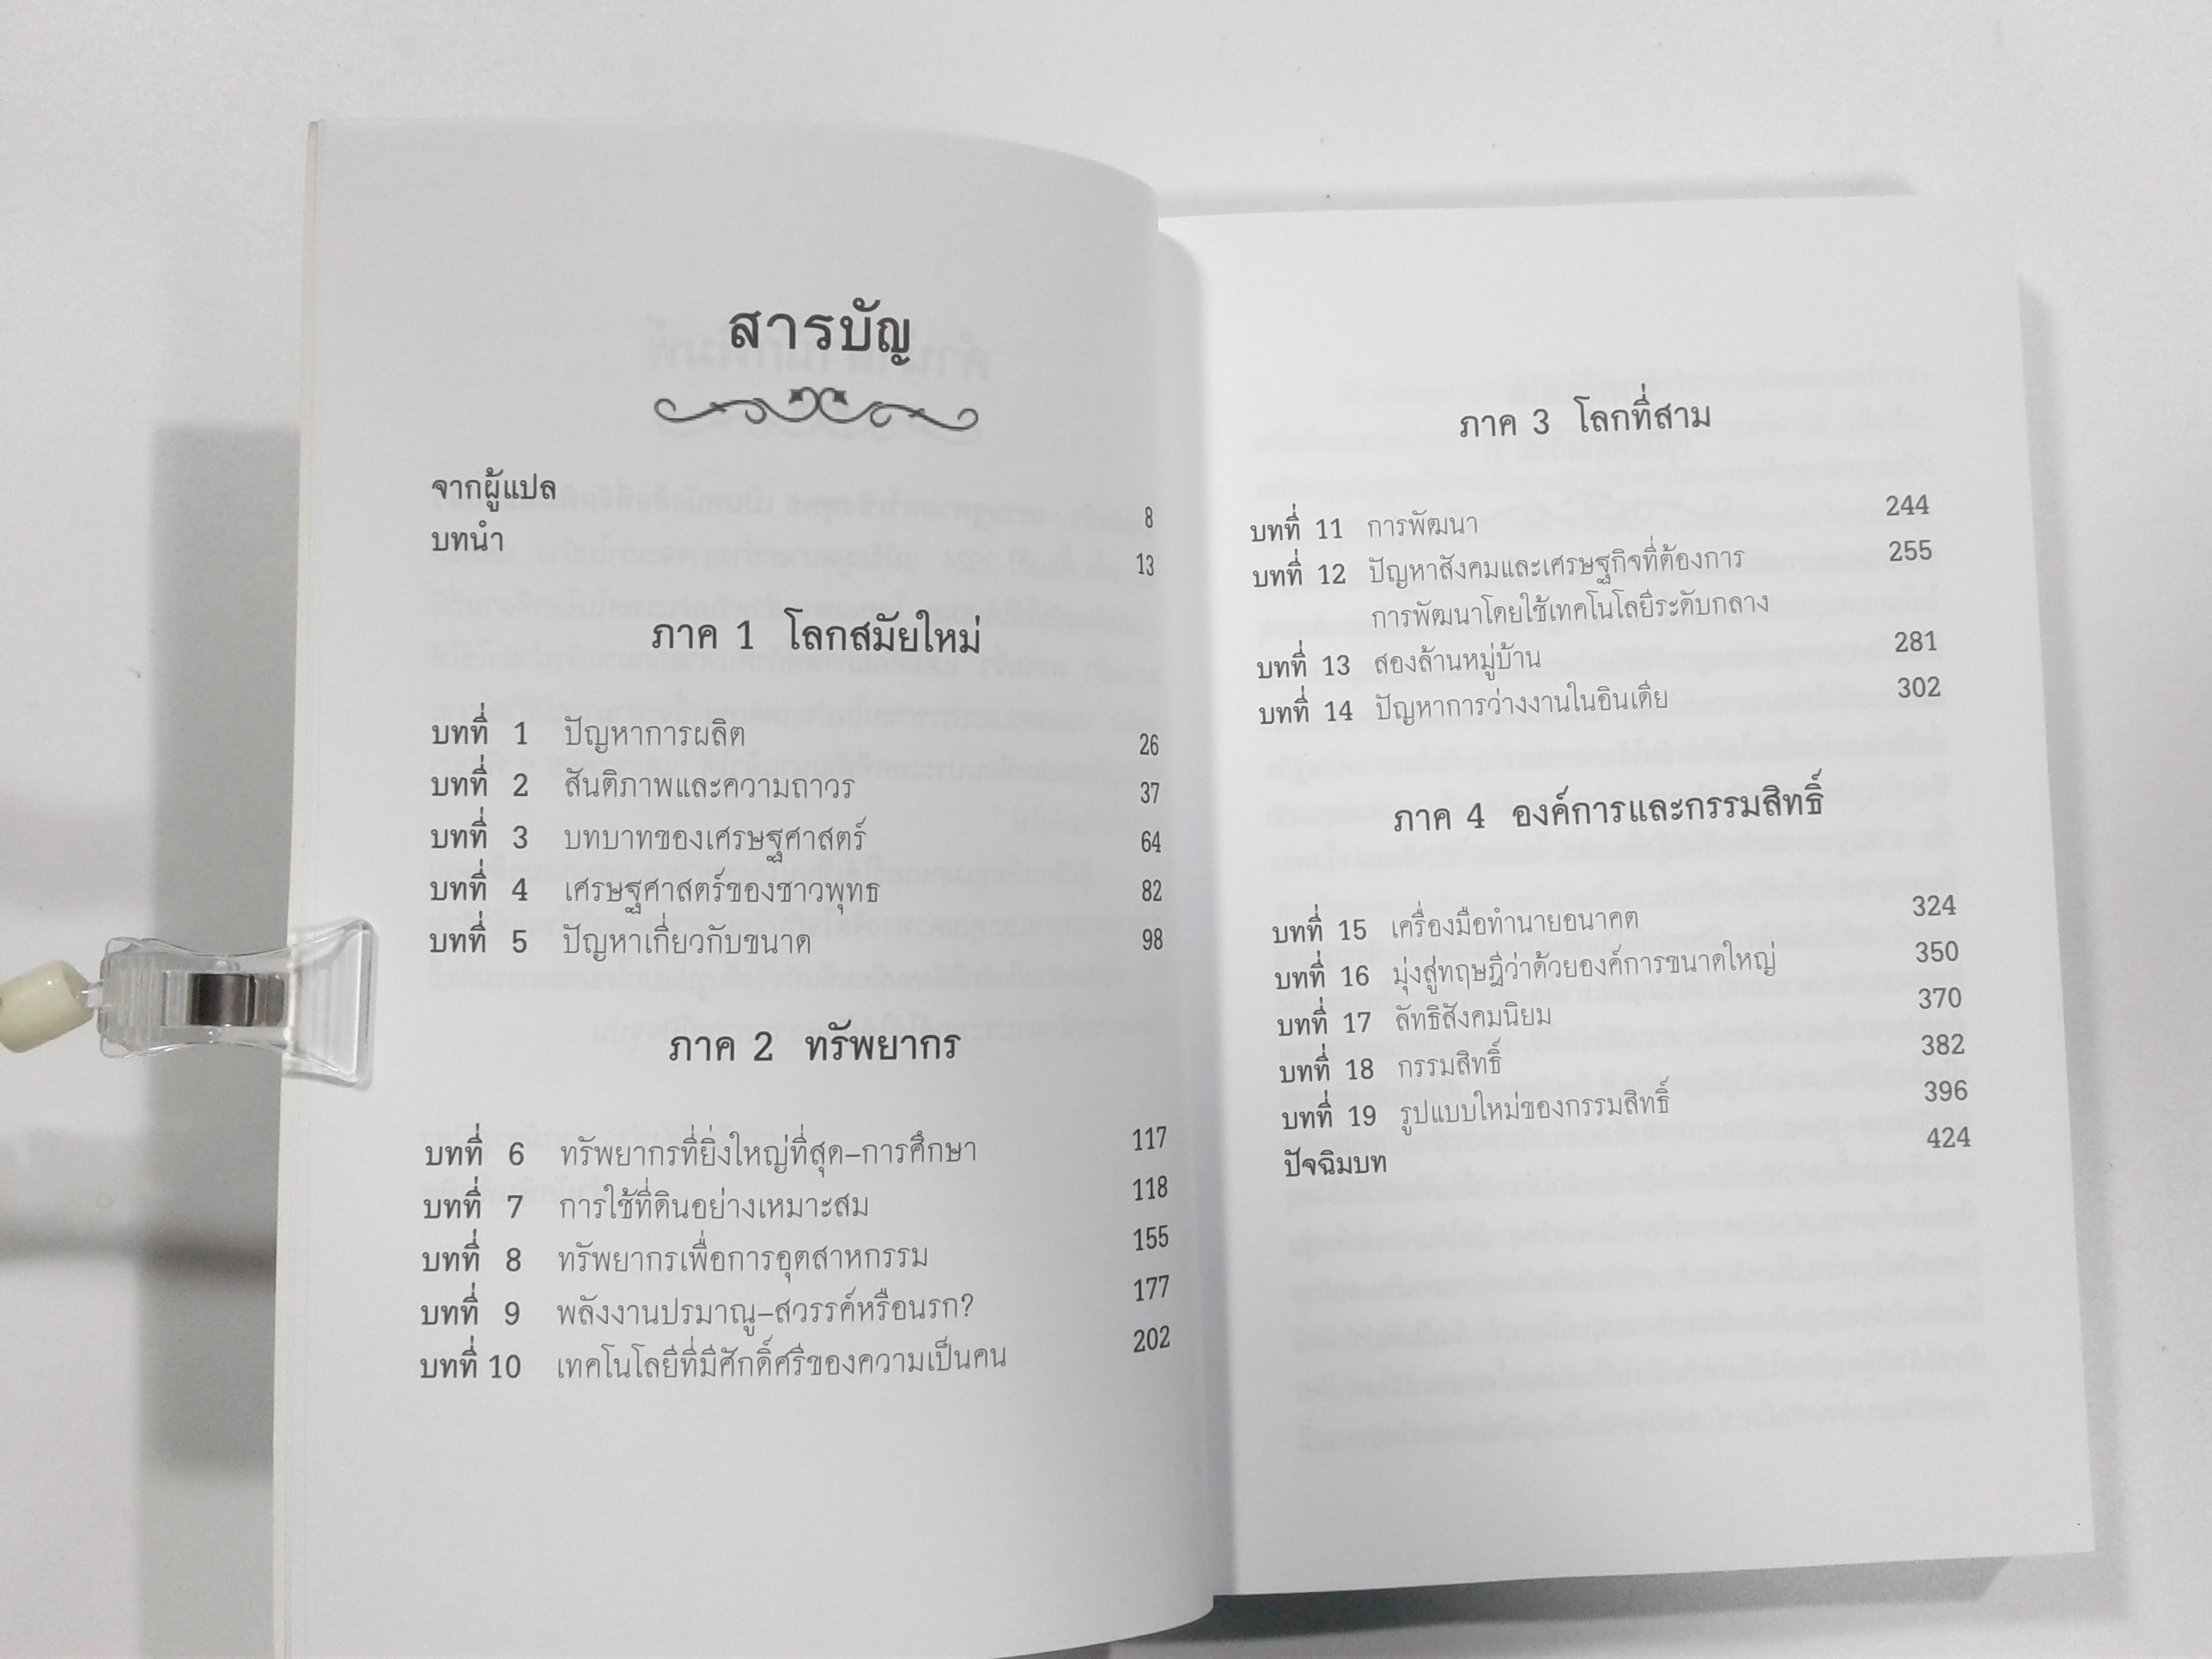 สารบัญ
จากผู้แปล 8
บทนำ 13
ภาค 1 โลกสมัยใหม่
บทที่ 1 ปัญหาการผลิต 26
บทที่ 2 สันติภาพและความถาวร 37
บทที่ 3 บทบาทของเศรษฐศาสตร์ 64
บทที่ 4 เศรษฐศาสตร์ของชาวพุทธ 82
บทที่ 5 ปัญหาเกี่ยวกับขนาด 98
ภาค 2 ทรัพยากร
บทที่ 6 ทรัพยากรที่ยิ่งใหญ่ที่สุด–การศึกษา 117
บทที่ 7 การใช้ที่ดินอย่างเหมาะสม 118
บทที่ 8 ทรัพยากรเพื่อการอุตสาหกรรม 155
บทที่ 9 พลังงานปรมาณู–สวรรค์หรือนรก? 177
บทที่ 10 เทคโนโลยีที่มีศักดิ์ศรีของความเป็นคน 202
ภาค 3 โลกที่สาม
บทที่ 11 การพัฒนา 244
บทที่ 12 ปัญหาสังคมและเศรษฐกิจที่ต้องการ 255
การพัฒนาโดยใช้เทคโนโลยีระดับกลาง
บทที่ 13 สองล้านหมู่บ้าน 281
บทที่ 14 ปัญหาการว่างงานในอินเดีย 302
ภาค 4 องค์การและกรรมสิทธิ์
บทที่ 15 เครื่องมือทำนายอนาคต 324
บทที่ 16 มุ่งสู่ทฤษฎีว่าด้วยองค์การขนาดใหญ่ 350
บทที่ 17 ลัทธิสังคมนิยม 370
บทที่ 18 กรรมสิทธิ์ 382
บทที่ 19 รูปแบบใหม่ของกรรมสิทธิ์ 396
ปัจฉิมบท 424